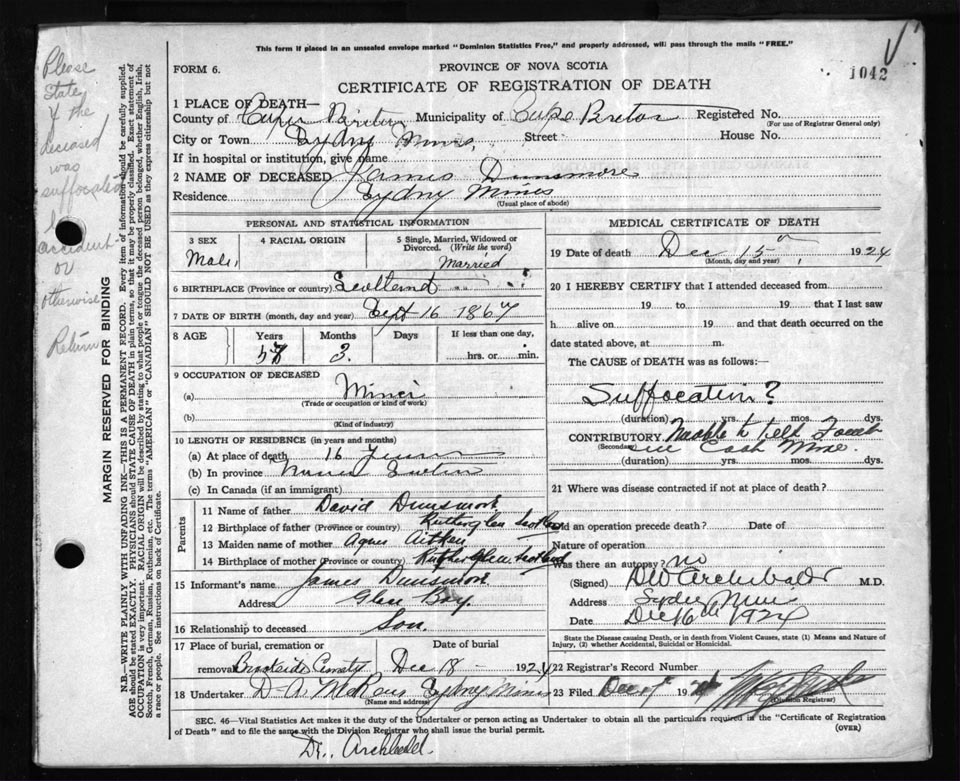 This form if placed in an unsealed envelope marked "Dominion Statistics Free," and properly addressed, will pass through the mails "FREE."
FORM 6.
PROVINCE OF NOVA SCOTIA
1042
CERTIFICATE OF REGISTRATION OF DEATH
1 PLACE OF DEATH—
County of Cape Breton Municipality of Cape Breton Registered No.
(For use of Registrar General only)
City or Town Sydney Mines, Street House No.
If in hospital or institution, give name
2 NAME OF DECEASED James Dunsmore
Residence Sydney Mines
(Usual place of abode)
PERSONAL AND STATISTICAL INFORMATION
3 SEX
Male
4 RACIAL ORIGIN
5 Single, Married, Widowed or
Divorced. (Write the word)
Married
6 BIRTHPLACE (Province or country) Scotland
7 DATE OF BIRTH (month, day and year) Sept 16 1867
8 AGE
Years
Months
3
Days
If less than one day,
hrs. or min.
9 OCCUPATION OF DECEASED
(a) Miner
(Trade or occupation or kind of work)
(b)
(Kind of industry)
10 LENGTH OF RESIDENCE (in years and months)
(a) At place of death 16 Years
(b) In province
(c) In Canada (if an immigrant)
Parents
11 Name of father David Dunsmore
12 Birthplace of father (Province or country) Rutherglen Scotland
13 Maiden name of mother Agnes Aitken
14 Birthplace of mother (Province or country) Rutherglen Scotland
15 Informant's name James Dunsmore
Address Glace Bay.
16 Relationship to deceased Son.
17 Place of burial, cremation or
removal Brookside Cemetery
Date of burial
Dec 18 1924
18 Undertaker Sydney Mines
(Name and address)
MEDICAL CERTIFICATE OF DEATH
19 Date of death Dec 15th, 1924
(Month, day and year)
20 I HEREBY CERTIFY that I attended deceased from
19 to 19 that I last saw
h alive on 19 and that death occurred on the
date stated above, at m.
The CAUSE of DEATH was as follows:—
Suffocation?
(duration) yrs. mos. dys.
CONTRIBUTORY
(Secondary)
Mine.
(duration) yrs. mos. dys.
21 Where was disease contracted if not at place of death?
Did an operation precede death? Date of
Nature of operation
Was there an autopsy? no
(Signed) DW Archibald M.D.
Address Sydney Mines
Date Dec 16th 1924
State the Disease causing Death, or in death from Violent Causes, state (1) Means and Nature of
Injury, (2) whether Accidental, Suicidal or Homicidal.
22 Registrar's Record Number
23 Filed Dec
(Division Registrar)
SEC. 46—Vital Statistics Act makes it the duty of the Undertaker or person acting as Undertaker to obtain all the particulars required in the "Certificate of Registration
of Death" and to file the same with the Division Registrar who shall issue the burial permit.
(OVER)
Dr. Archibald.
Please
State
if the
deceased
was
suffocated
by
accident
or
otherwise
Return
MARGIN RESERVED FOR BINDING
N.B.—WRITE PLAINLY WITH UNFADING INK—THIS IS A PERMANENT RECORD. Every item of information should be carefully supplied.
AGE should be stated EXACTLY. PHYSICIANS should STATE CAUSE OF DEATH in plain terms, so that it may be properly classified. Exact statement of
OCCUPATION is very important. RACIAL ORIGIN will be described by stating to what people or tongue the deceased person belonged, whether English, Irish,
Scotch, French, German, Russian, Ruthenian, etc. The terms "AMERICAN" or "CANADIAN" SHOULD NOT BE USED as they express citizenship but not
a race or people. See instructions on back of Certificate.